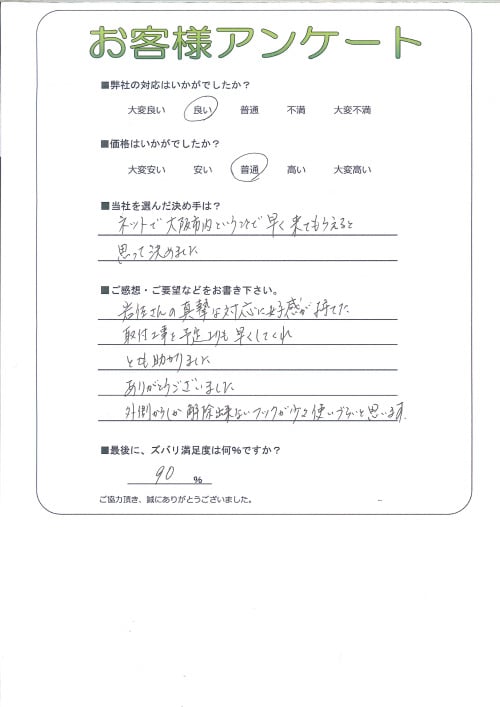 お客様アンケート
■弊社の対応はいかがでしたか？
大変良い 良い 普通 不満 大変不満
■価格はいかがでしたか？
大変安い 安い 普通 高い 大変高い
■当社を選んだ決め手は？
ネットで大阪市内というので早く来てもらえると
思って決めました
■ご感想・ご要望などをお書き下さい。
岩佐さんの真摯な対応に好感が持てた
取付工事を予定よりも早くしてくれ
とても助かりました
ありがとうございました
外側からしか解除出来ないフックが少々使いづらいと思います.
■最後に、ズバリ満足度は何％ですか？
90 ％
ご協力頂き、誠にありがとうございました。